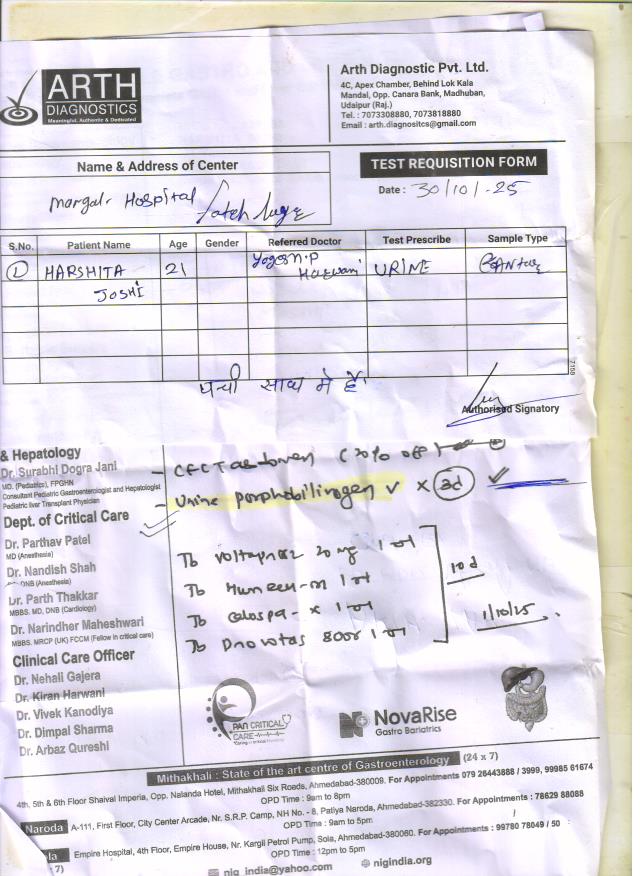 ARTH
DIAGNOSTICS
Meaningful, Authentic & Dedicated
Arth Diagnostic Pvt. Ltd.
4C, Apex Chamber, Behind Lok Kala
Mandal, Opp. Canara Bank, Madhuban,
Udaipur (Raj.)
Tel. : 7073308880, 7073818880
Email : arth.diagnositcs@gmail.com
Name & Address of Center
TEST REQUISITION FORM
Hospital
Date : 30/10/-25
S.No. Patient Name Age Gender Referred Doctor Test Prescribe Sample Type
1 HARSHITA 21 URINE
JOSHI
पर्ची साथ में हैं
Authorised Signatory
& Hepatology
Dr. Surabhi Dogra Jani
MD. (Pediatrics), FPGHN
Consultant Pediatric Gastroenterologist and Hepatologist
Pediatric liver Transplant Physician
(20% off)
Urine porphobilinogen
Dept. of Critical Care
Dr. Parthav Patel
MD (Anesthesia)
Dr. Nandish Shah
DNB (Anesthesia)
Dr. Parth Thakkar
MBBS. MD, DNB (Cardiology)
Dr. Narindher Maheshwari
MBBS. MRCP (UK) FCCM (Fellow in critical care)
Tb 20 mg 1
Tb 1
Tb 1
Tb 1
10 d
1/10/25
Clinical Care Officer
Dr. Nehali Gajera
Dr. Kiran Harwani
Dr. Vivek Kanodiya
Dr. Dimpal Sharma
Dr. Arbaz Qureshi
PAN CRITICAL
CARE
NovaRise
Gastro Bariatrics
Mithakhali : State of the art centre of Gastroenterology (24 x 7)
4th, 5th & 6th Floor Shaival Imperia, Opp. Nalanda Hotel, Mithakhali Six Roads, Ahmedabad-380009. For Appointments 079 26443888 / 3999, 99985 61674
OPD Time : 9am to 8pm
Naroda A-111, First Floor, City Center Arcade, Nr. S.R.P. Camp, NH No. - 8, Patiya Naroda, Ahmedabad-382330. For Appointments : 78629 88088
OPD Time : 9am to 5pm
Empire Hospital, 4th Floor, Empire House, Nr. Kargil Petrol Pump, Sola, Ahmedabad-380060. For Appointments : 99780 78049 / 50
OPD Time : 12pm to 5pm
nig_india@yahoo.com nigindia.org